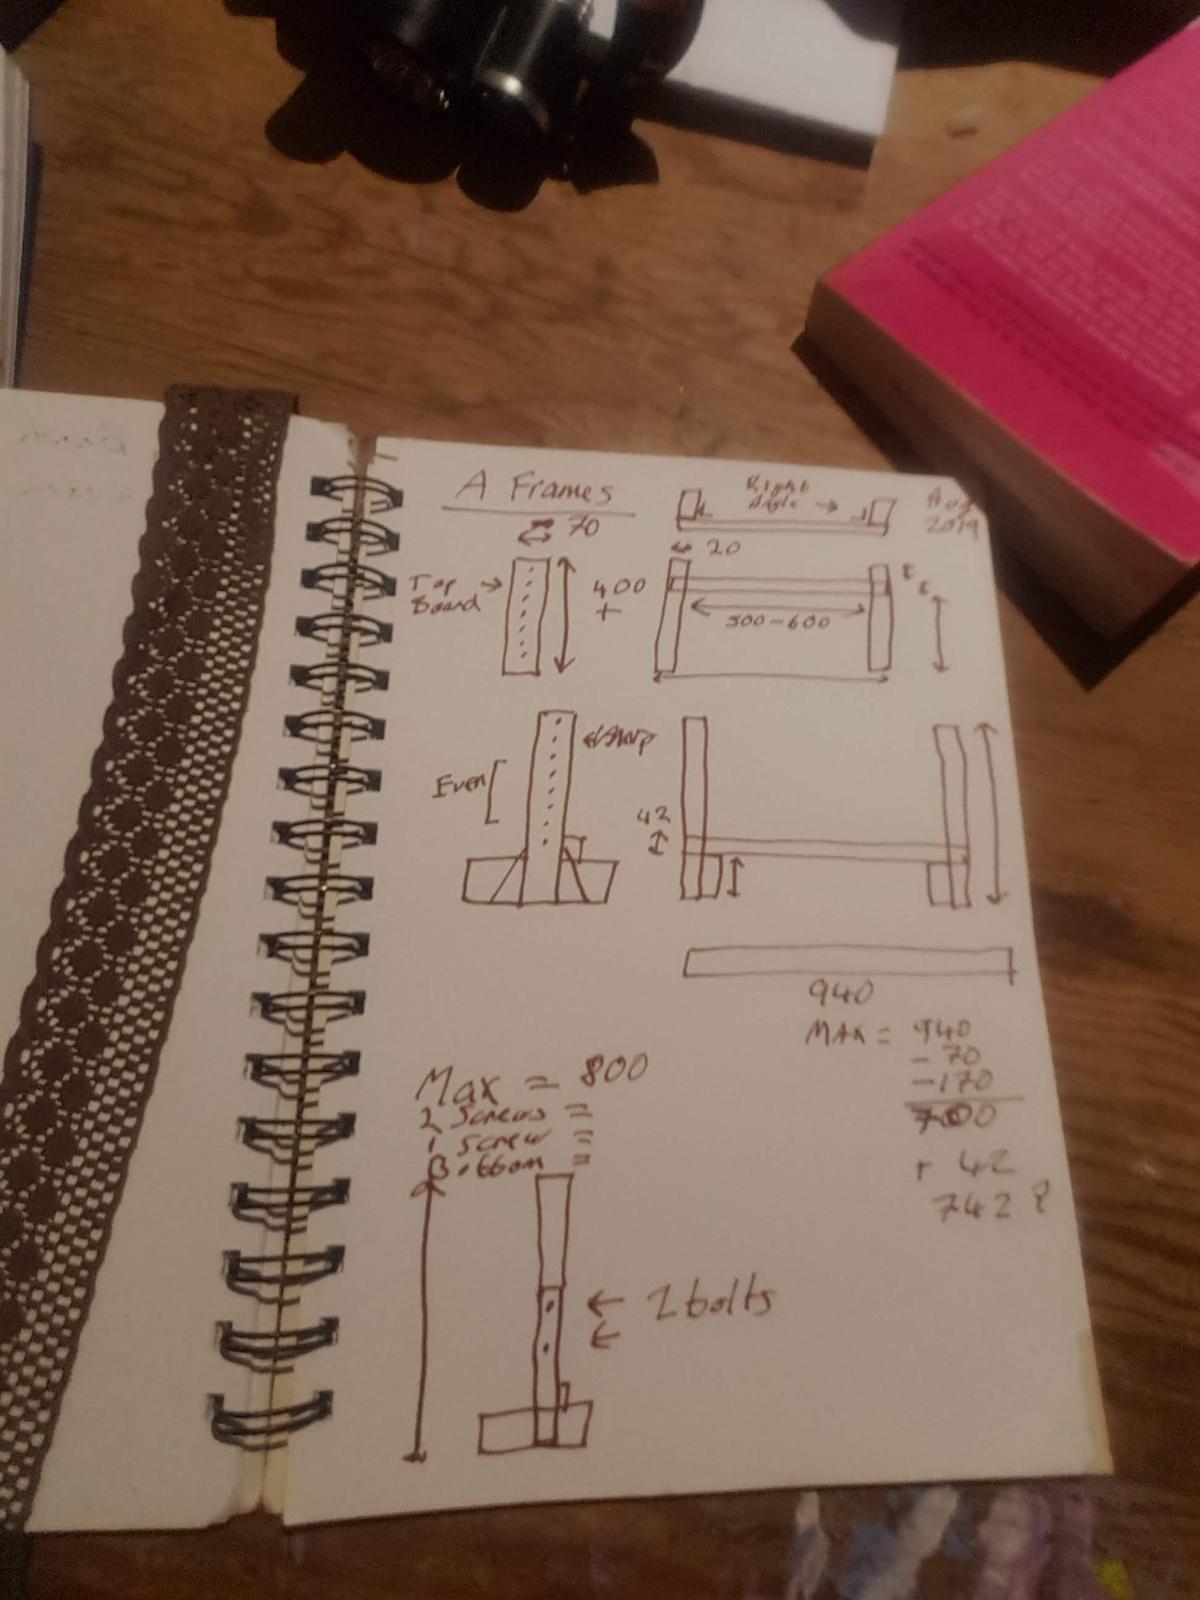 A Frames
70
Right
Angle →
Aug
2019
20
Top →
Board
400
+
500-600
Even
42
940
MAX = 940
- 70
- 170
700
+ 42
742?
Max = 800
2 Screws =
1 Screw =
Bottom =
← 2 bolts
←